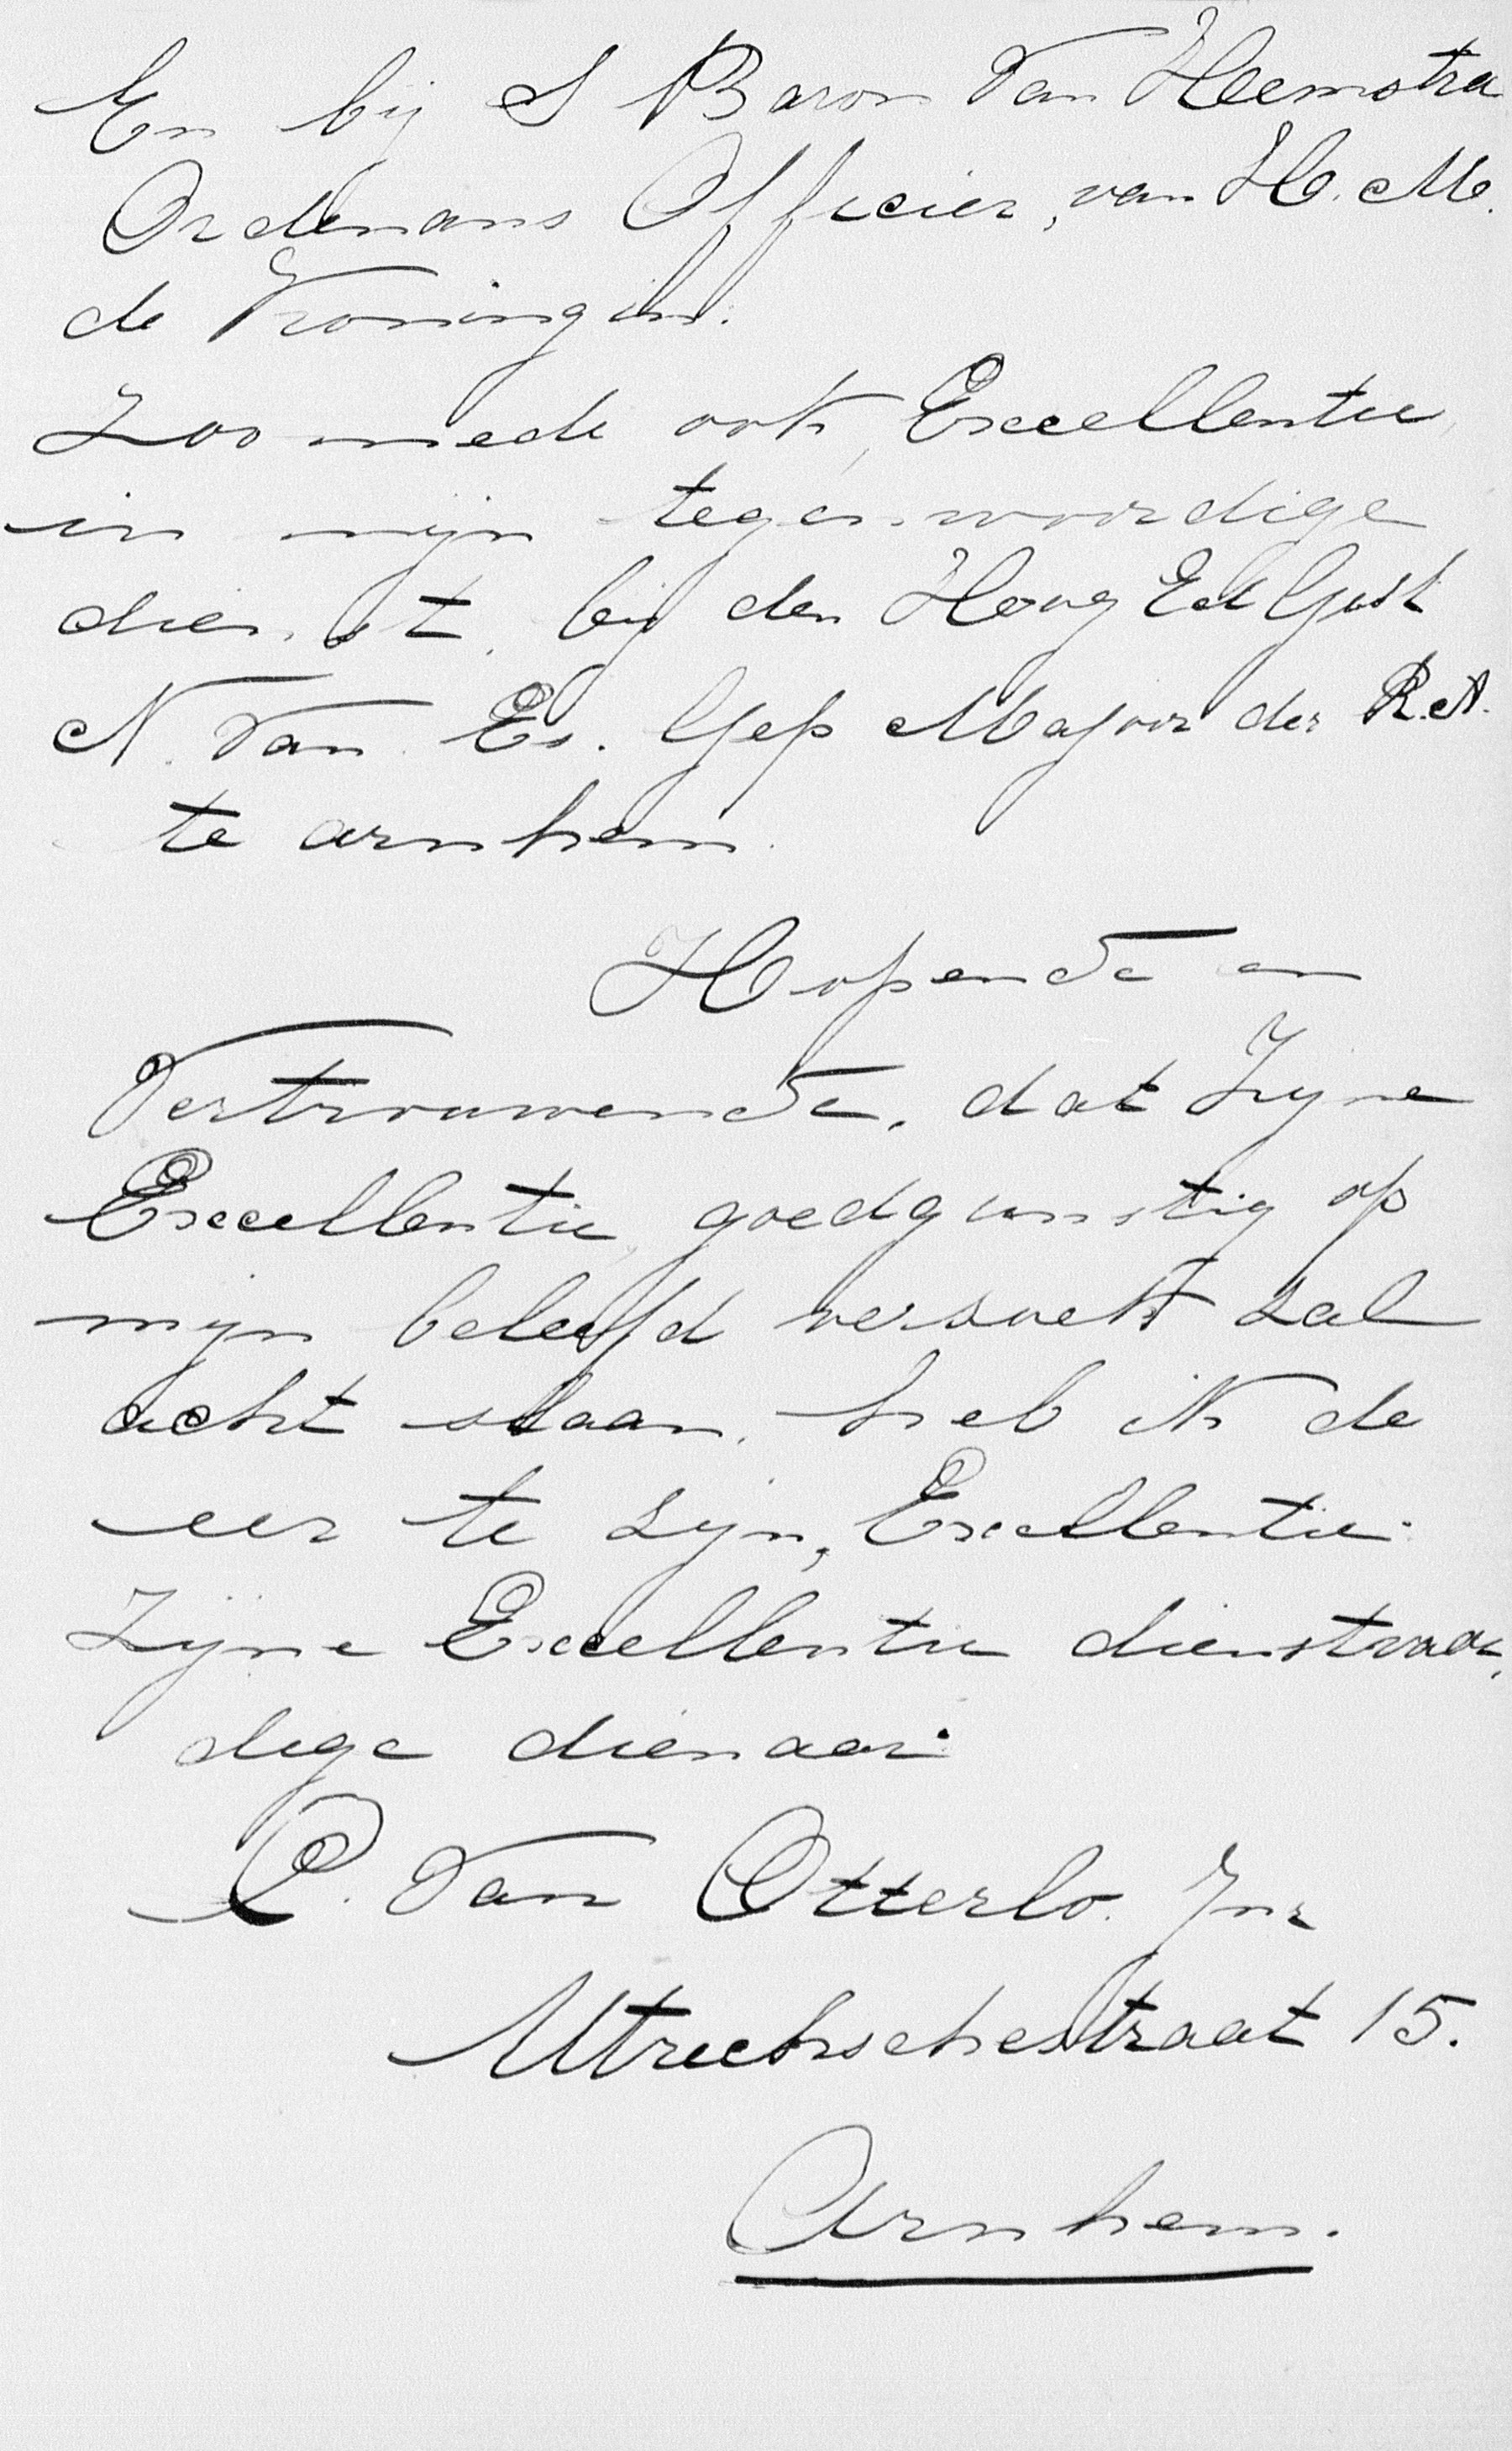 En bij S Baron Van Heemstra
Ordenans Officier, van H. M.
de Koningin.
Zoo mede ook, Excellentie,
in mijn tegenwoordige
dienst, bij den Hoog Ed Gest
N. Van Es. Gep Majoor der R.A.
te arnhem.
Hopende en
Vertrouwende, dat Zijne
Excellentie, goedgunstig op
mijn beleefd versoek zal
acht slaan, heb ik de
eer te zijn, Excellentie.
Zijne Excellentie dienstwaar,
dige dienaar.
P. Van Otterlo. Jnr
Utrechschestraat 15.
Arnhem.